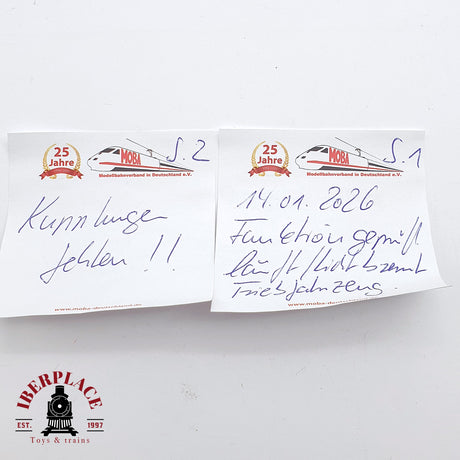 25
Jahre
MOBA
S.2
Modellbahnverband in Deutschland e.V.
Kupplungen
fehlen !!
www.moba-deutschland.de
25
Jahre
MOBA
S.1
Modellbahnverband in Deutschland e.V.
14.01.2026
Funktion geprüft
läuft / Licht brennt
Triebfahrzeug.
www.moba-deutsch
IBERPLACE
EST. 1997
Toys & trains